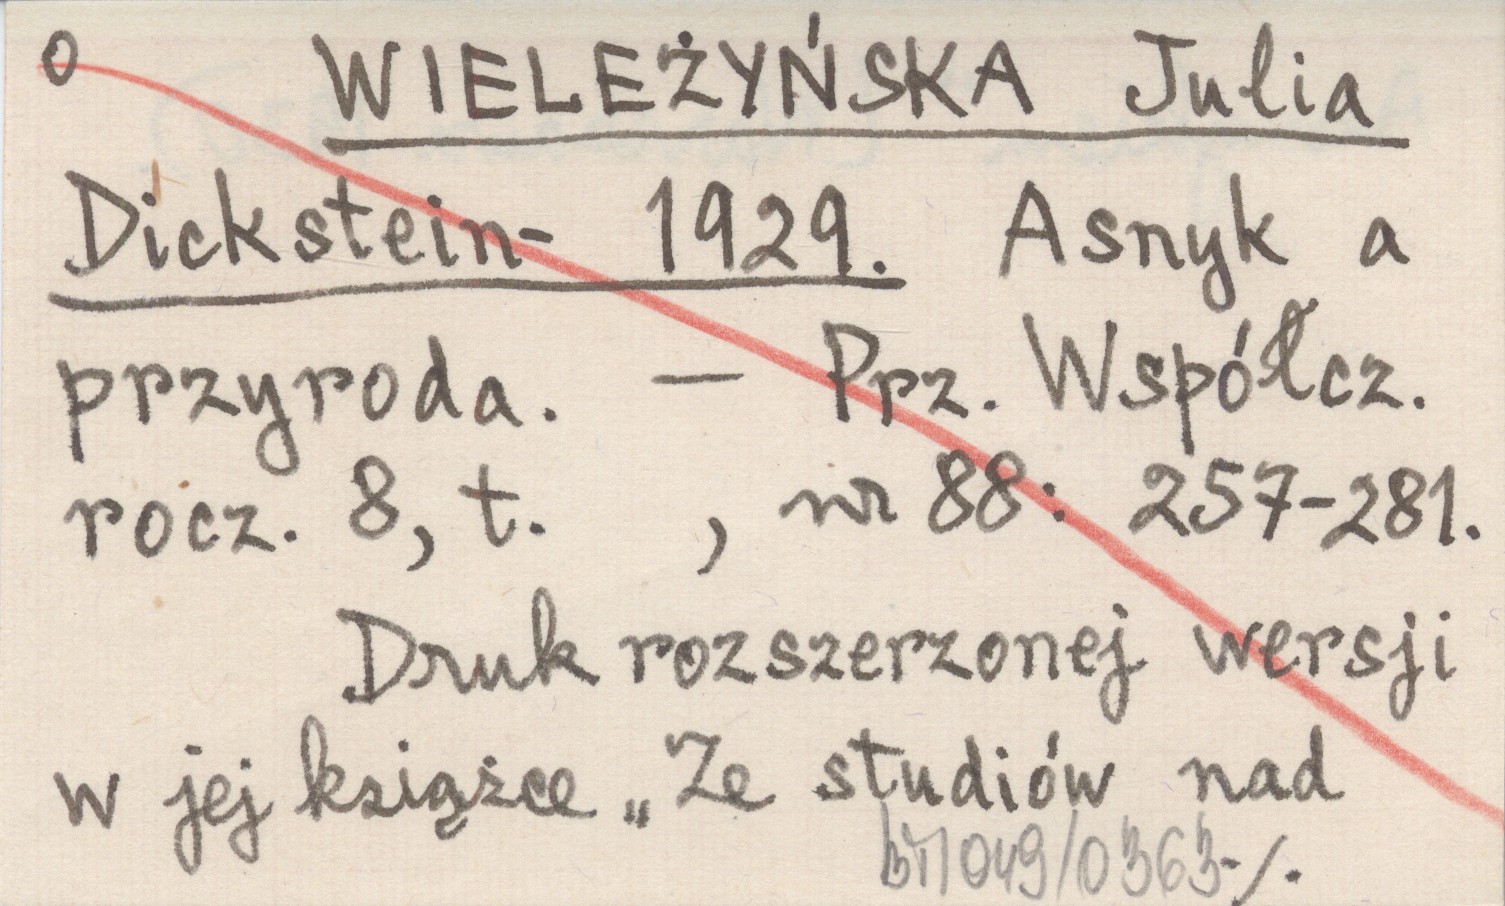 0 WIELEŻYŃSKA Julia
Dickstein- 1929. Asnyk a
przyroda. — Prz. Współcz.
rocz. 8, t. , nr 88: 257-281.
Druk rozszerzonej wersji
w jej książce „Ze studiów nad
049/0363-/.